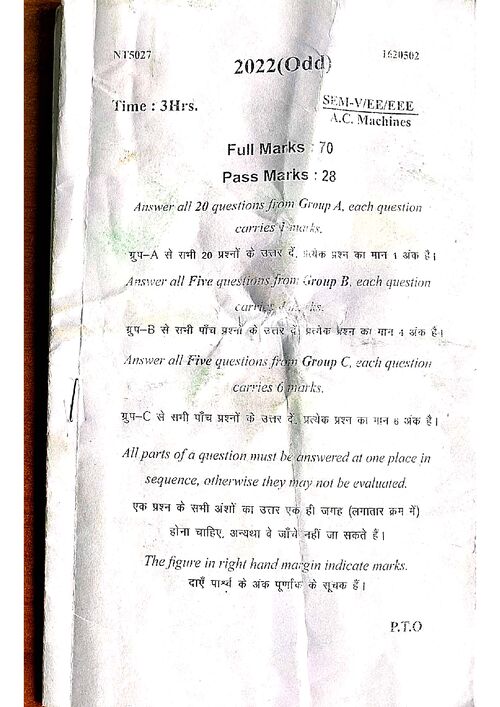 NT5027
1620502
2022(Odd)
Time : 3Hrs.
SEM-V/EE/EEE
A.C. Machines
Full Marks : 70
Pass Marks : 28
Answer all 20 questions from Group A, each question
carries 1 marks.
ग्रुप–A से सभी 20 प्रश्नों के उत्तर दें, प्रत्येक प्रश्न का मान 1 अंक है।
Answer all Five questions from Group B, each question
carries
ग्रुप–B से सभी पाँच प्रश्नों के उत्तर दें, प्रत्येक प्रश्न का मान 4 अंक है।
Answer all Five questions from Group C, each question
carries 6 marks.
ग्रुप–C से सभी पाँच प्रश्नों के उत्तर दें, प्रत्येक प्रश्न का मान 6 अंक है।
All parts of a question must be answered at one place in
sequence, otherwise they may not be evaluated.
एक प्रश्न के सभी अंशों का उत्तर एक ही जगह (लगातार क्रम में)
होना चाहिए, अन्यथा वे जाँचे नहीं जा सकते हैं।
The figure in right hand margin indicate marks.
दाएँ पार्श्व के अंक पूर्णांक के सूचक हैं।
P.T.O